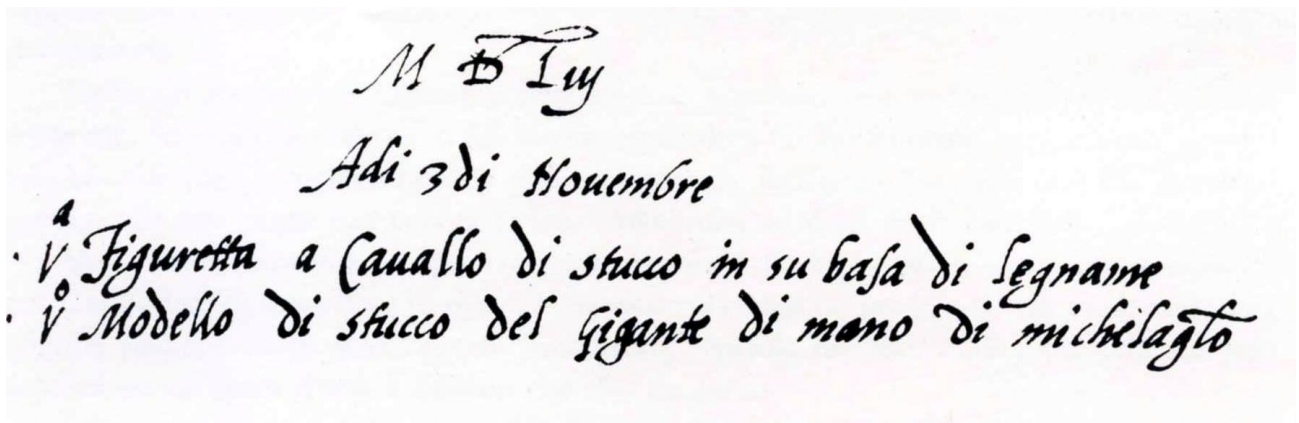 M D Liij
Adi 3 di Nouembre
va Figuretta a Cauallo di stucco in su basa di legname
vo Modello di stucco del gigante di mano di michelaglo